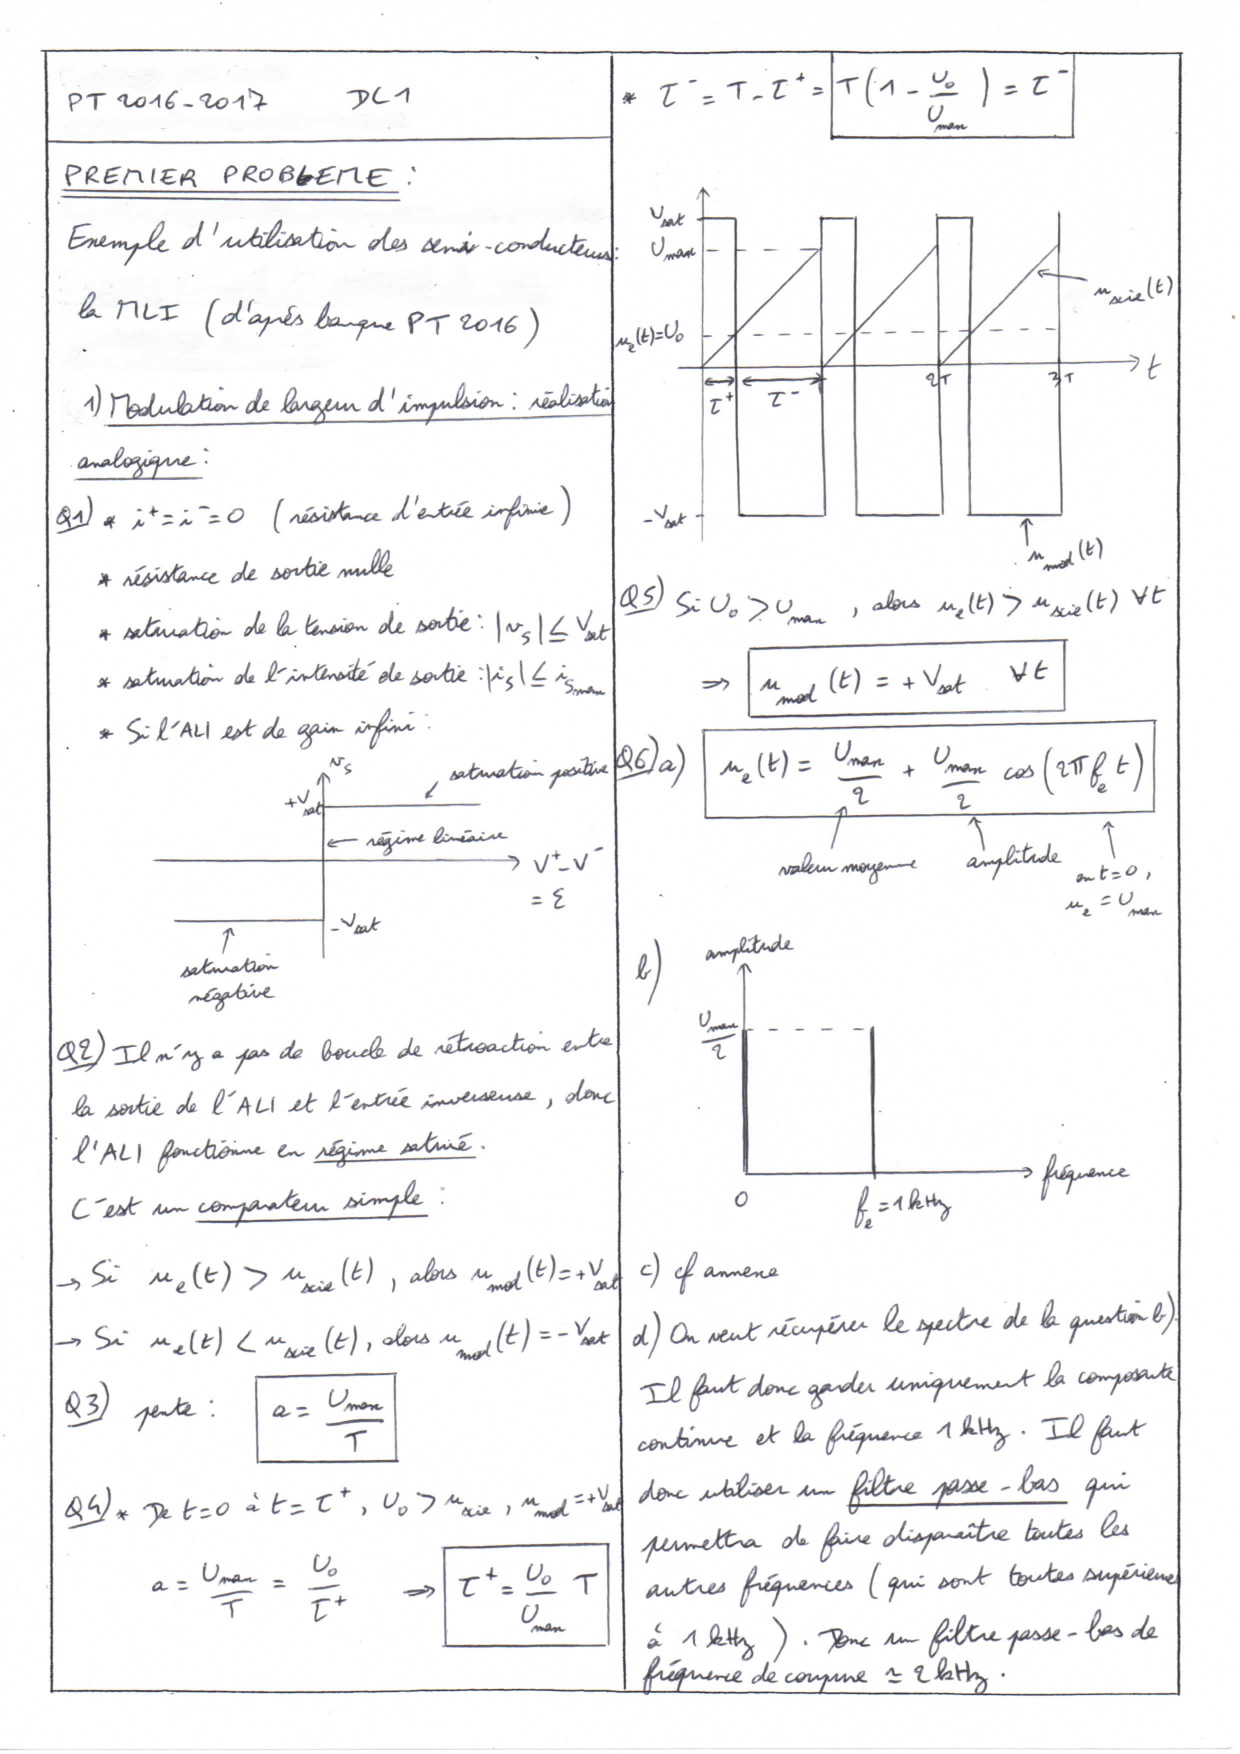 PT 2016-2017 DC1
PREMIER PROBLEME :
Exemple d'utilisation des semi-conducteurs :
la MLI (d'après banque PT 2016)
1) Modulation de largeur d'impulsion : réalisation
analogique :
Q1) * i⁺ = i⁻ = 0 (résistance d'entrée infinie)
* résistance de sortie nulle
* saturation de la tension de sortie : |v_s| ≤ V_sat
* saturation de l'intensité de sortie : |i_s| ≤ i_smax
* Si l'ALI est de gain infini :
v_s
saturation positive
+V_sat
← régime linéaire
V⁺ - V⁻
= ε
-V_sat
saturation
négative
Q2) Il n'y a pas de boucle de rétroaction entre
la sortie de l'ALI et l'entrée inverseuse, donc
l'ALI fonctionne en régime saturé.
C'est un comparateur simple :
→ Si u_e(t) > u_scie(t), alors u_mod(t) = +V_sat
→ Si u_e(t) < u_scie(t), alors u_mod(t) = -V_sat
Q3) pente : a = U_max / T
Q4) * De t=0 à t = τ⁺, U_0 > u_scie, u_mod = +V_sat
a = U_max / T = U_0 / τ⁺ ⇒ τ⁺ = U_0 / U_max T
* τ⁻ = T - τ⁺ = T(1 - U_0 / U_max) = τ⁻
V_sat
U_max
u_scie(t)
u_e(t) = U_0
t
τ⁺ τ⁻ 2T 3T
-V_sat
u_mod(t)
Q5) Si U_0 > U_max, alors u_e(t) > u_scie(t) ∀t
⇒ u_mod(t) = +V_sat ∀t
Q6) a) u_e(t) = U_max / 2 + U_max / 2 cos(2π f_e t)
valeur moyenne amplitude en t=0,
u_e = U_max
b) amplitude
U_max / 2
fréquence
0 f_e = 1 kHz
c) cf annexe
d) On veut récupérer le spectre de la question b).
Il faut donc garder uniquement la composante
continue et la fréquence 1 kHz. Il faut
donc utiliser un filtre passe-bas qui
permettra de faire disparaître toutes les
autres fréquences (qui sont toutes supérieures
à 1 kHz). Donc un filtre passe-bas de
fréquence de coupure ≃ 2 kHz.